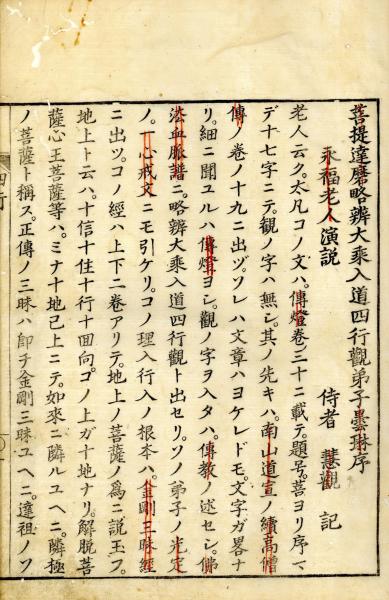 菩提達磨略辨大乘入道四行觀弟子曇琳序
永福老人演説
侍者 慧觀 記
老人云ク。太凡コノ文ハ。傳燈卷三十ニ載テ。題号。菩ヨリ序マ
デ十七字ニテ。觀ノ字ハ無シ。其ノ先キハ。南山道宣ノ續高僧
傳ノ卷ノ十九ニ出ヅ。ソレハ文章ハヨケレドモ。文字ガ畧ナ
リ。細ニ聞ユルハ傳燈ヨシ。觀ノ字ヲ入タハ。傳教ノ述セシ。佛
法血脈譜ニ。略辨大乘入道四行觀ト出セリ。ソノ弟子ノ光定
ノ。一心戒文ニモ引ケリ。コノ理入行入ノ根本ハ。金剛三昧經
ニ出ヅ。コノ經ハ上下二卷アリテ。地上ノ菩薩ノ爲ニ説玉フ。
地上ト云ハ。十信十住十行十回向。コノ上ガ十地ナリ。解脱菩
薩心王菩薩等ハ。ミナ十地已上ニテ。如來ニ隣ルユヘニ。隣極
ノ菩薩ト稱ス。正傳ノ三昧ハ即チ金剛三昧ユヘニ。達祖ノツ
四行